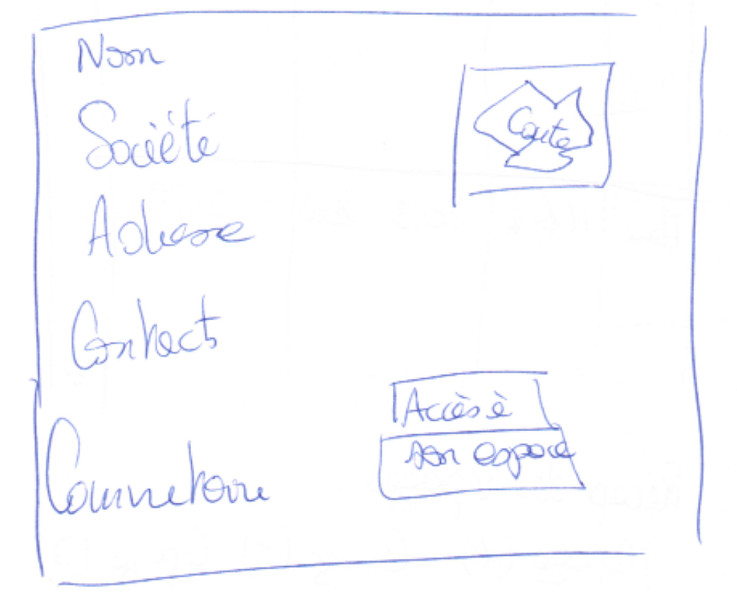 Nom
Carte
Société
Adresse
Contacts
Accès à
son espace
Commentaire